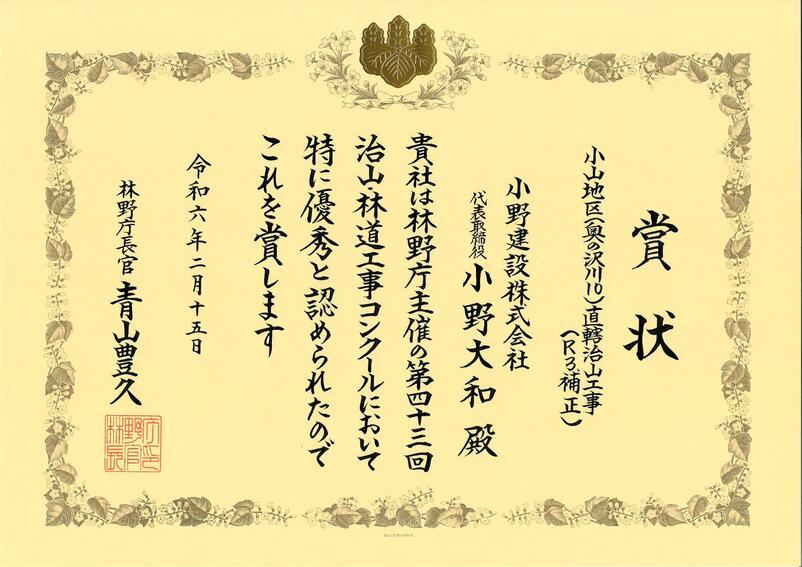 賞状
小山地区(奥の沢川10)直轄治山工事
(R3補正)
小野建設株式会社
代表取締役 小野大和 殿
貴社は林野庁主催の第四十三回
治山・林道工事コンクールにおいて
特に優秀と認められたので
これを賞します
令和六年二月十五日
林野庁長官 青山豊久